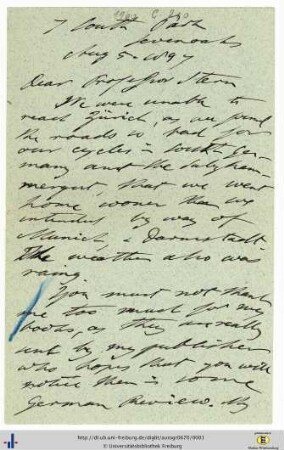 7 South Park
Sevenoaks
Aug 5. 1897
Dear Professor Stern
We were unable to
reach Zürich, as we found
the roads so bad for
our cycles in South Ger-
many and the Salzkam-
mergut, that we went
home sooner than we
intended by way of
Munich, & Darmstadt.
The weather also was
rainy.
You must not thank
me too much for my
books, as they are really
sent by my publisher
who hopes that you will
notice them in some
German Review. My
http://dl.ub.uni-freiburg.de/diglit/autogr0675/0001
© Universitätsbibliothek Freiburg